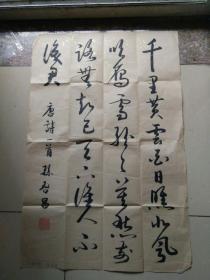 千里黄雲白日曛北風
吹雁雪紛紛莫愁前
路無知己天下誰人不
識君
唐詩一首